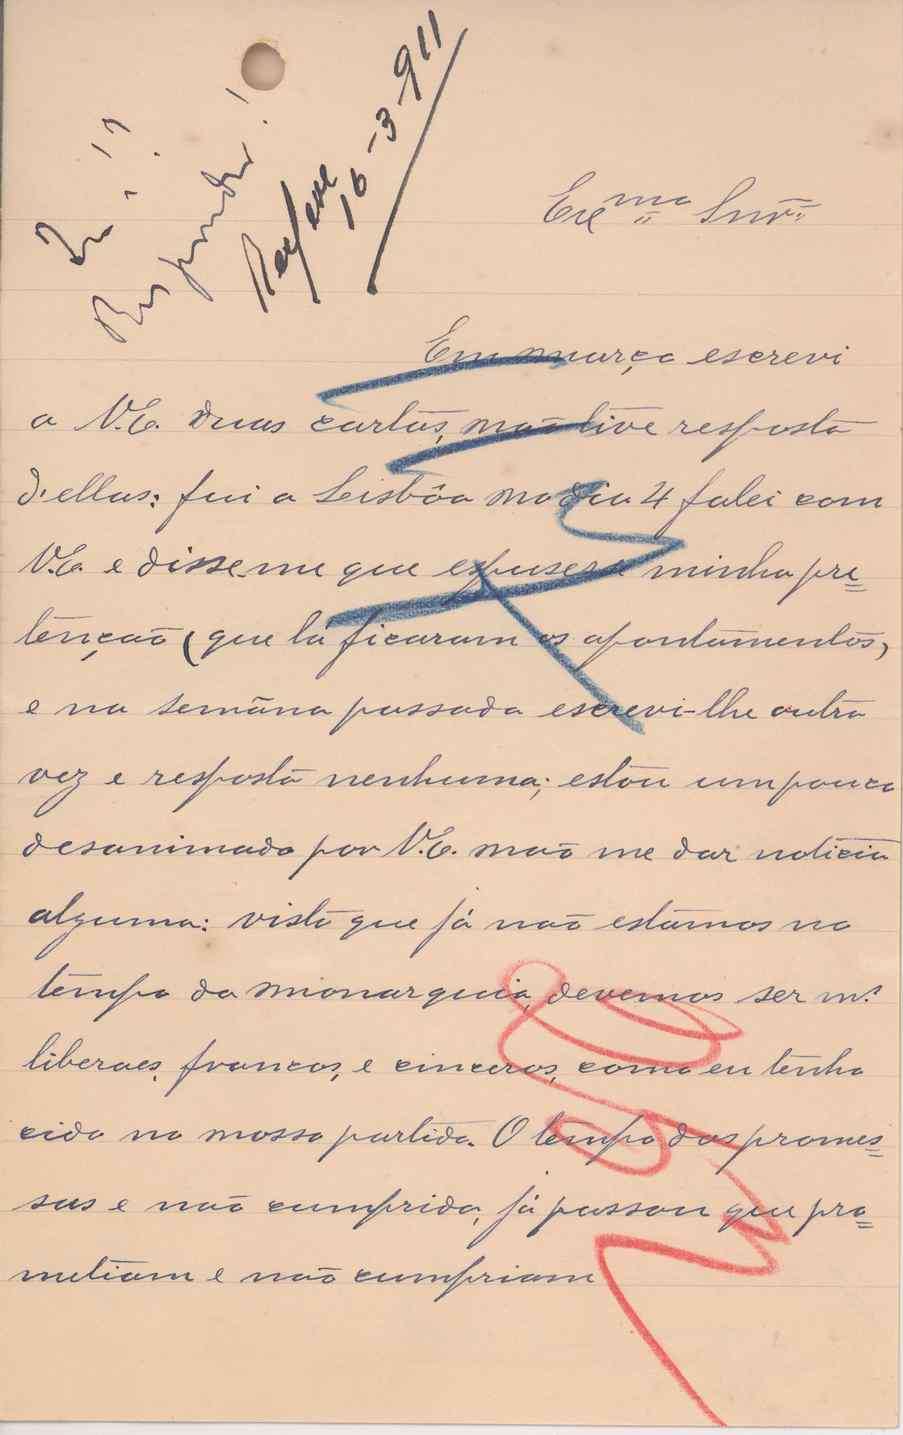 Responder!
16-3-911
Exc.ma Snr.
Em março escrevi
a V.E. duas cartas, não tive resposta
d'ellas: fui a Lisbôa no dia 4 falei com
V.E. e disse-me que espusese minha pre=
tenção (que lá ficaram os apontamentos,
e na semâna passada escrevi-lhe outra
vez e resposta nenhuma; estou um pouco
desanimado por V.E. não me dar noticia
alguma: visto que já não estâmos no
tempo da monarquia, devemos ser m.to
liberaes, francos, e cinceros, como eu tenho
cido no nosso partido. O tempo das promes=
sas e não cumprido, já passou que pro=
metiam e não cumpriam